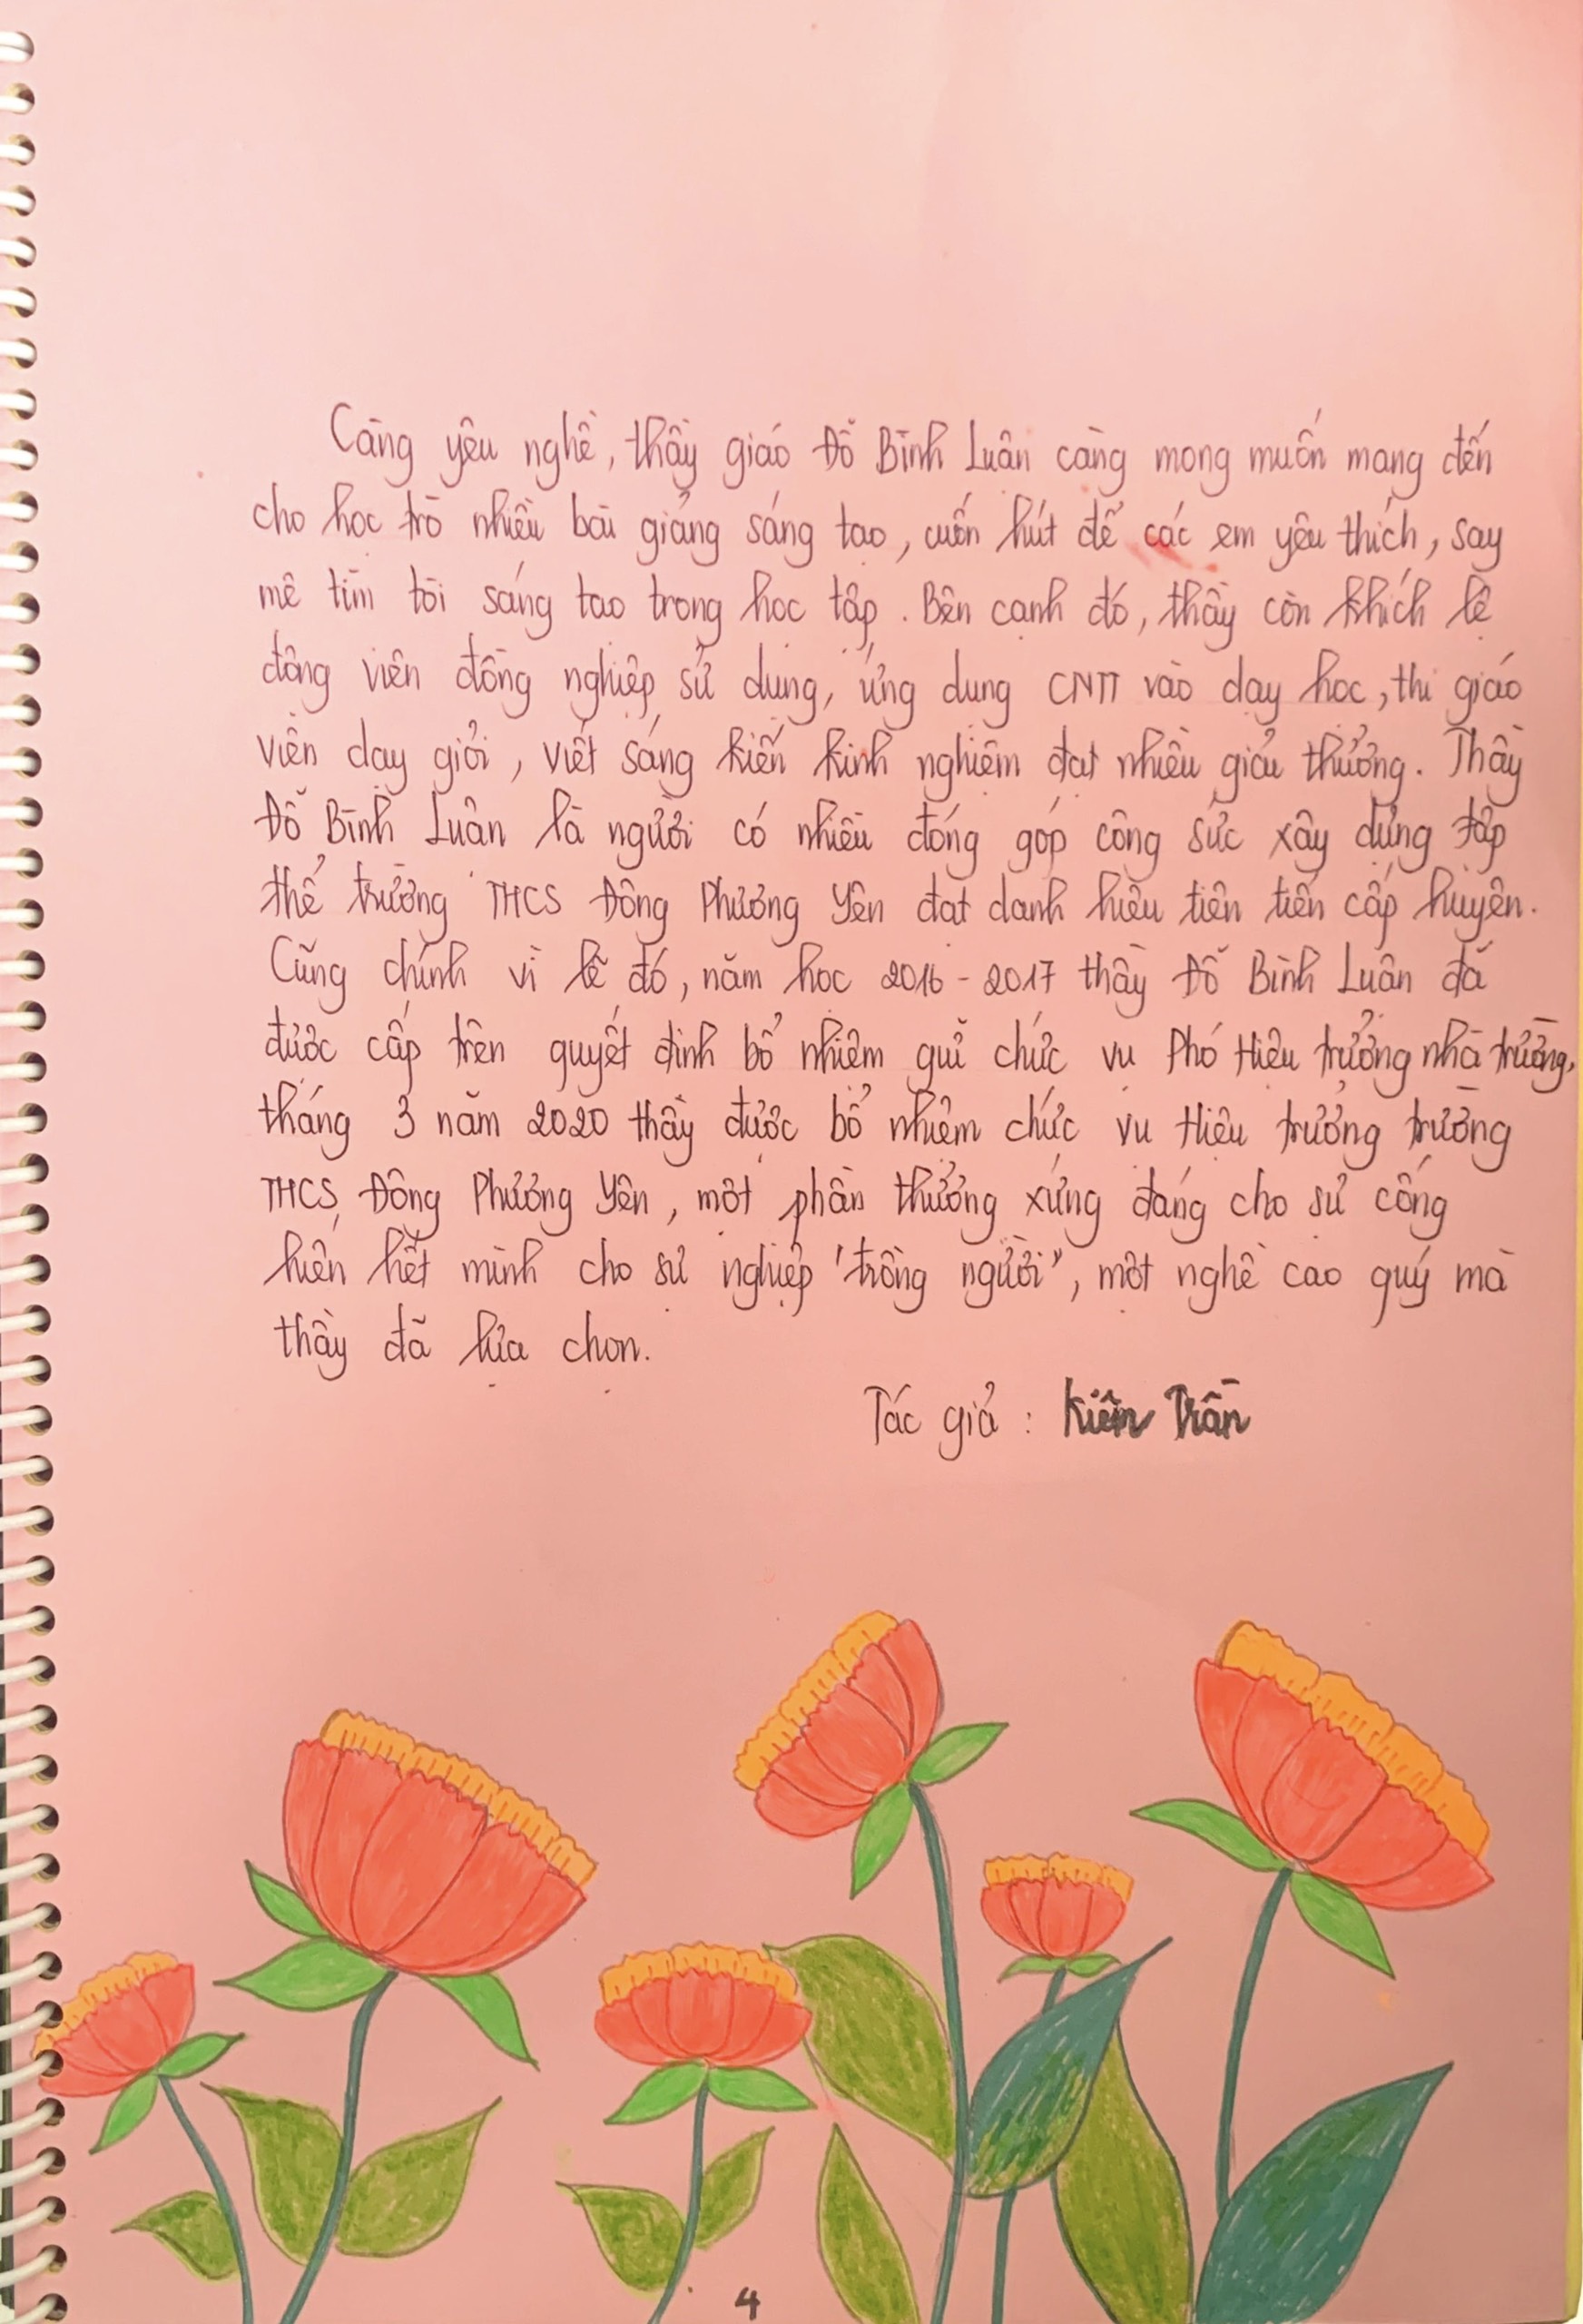 Càng yêu nghề, thầy giáo Đỗ Bình Luận càng mong muốn mang đến
cho học trò nhiều bài giảng sáng tạo, cuốn hút để các em yêu thích, say
mê tìm tòi sáng tạo trong học tập. Bên cạnh đó, thầy còn khích lệ
động viên đồng nghiệp sử dụng, ứng dụng CNTT vào dạy học, thi giáo
viên dạy giỏi, viết sáng kiến kinh nghiệm đạt nhiều giải thưởng. Thầy
Đỗ Bình Luận là người có nhiều đóng góp công sức xây dựng tập
thể trường THCS Đông Phương Yên đạt danh hiệu tiên tiến cấp huyện.
Cũng chính vì lẽ đó, năm học 2016 - 2017 thầy Đỗ Bình Luận đã
được cấp trên quyết định bổ nhiệm giữ chức vụ Phó Hiệu trưởng nhà trường,
tháng 3 năm 2020 thầy được bổ nhiệm chức vụ Hiệu trưởng trường
THCS Đông Phương Yên, một phần thưởng xứng đáng cho sự cống
hiến hết mình cho sự nghiệp "trồng người", một nghề cao quý mà
thầy đã lựa chọn.
Tác giả : Kiên Trần
4